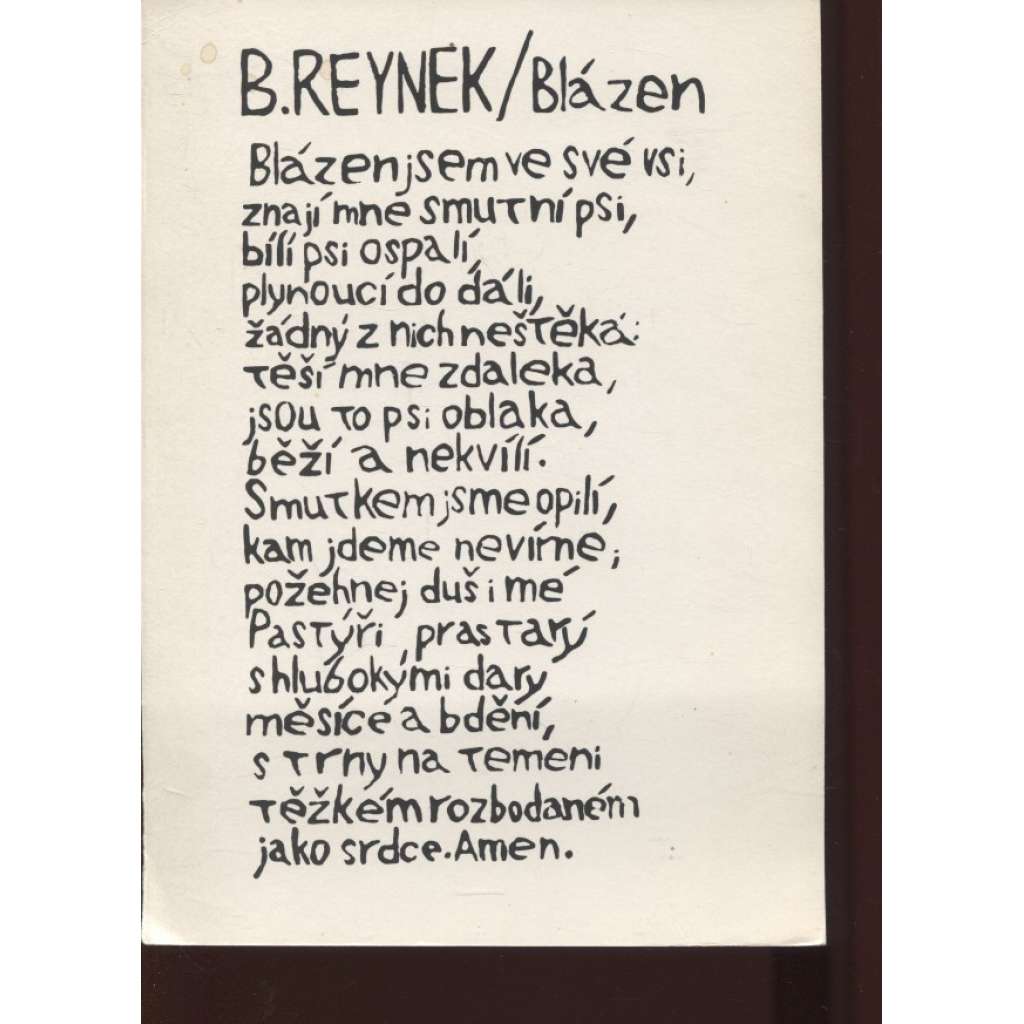 B.REYNEK/Blázen
Blázen jsem ve své vsi,
znají mne smutní psi,
bílí psi ospalí,
plynoucí do dáli,
žádný z nich neštěká:
těší mne zdaleka,
jsou to psi oblaka,
běží a nekvílí.
Smutkem jsme opilí,
kam jdeme nevíme;
požehnej duši mé
Pastýři, prastarý
s hlubokými dary
měsíce a bdění,
s trny na temeni
těžkém rozbodaném
jako srdce. Amen.